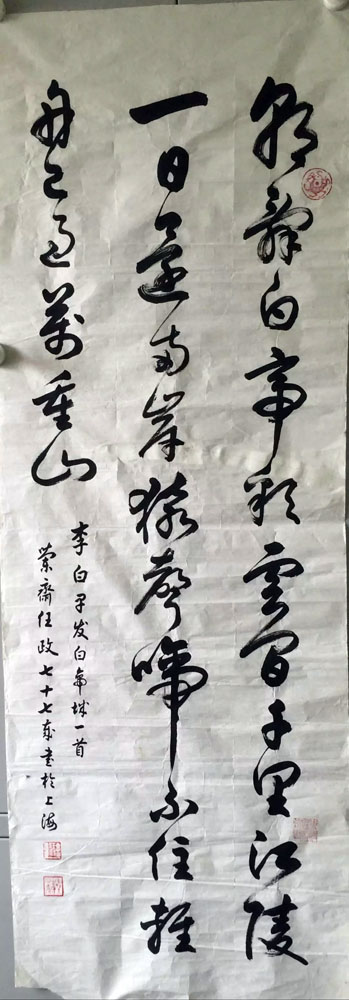 朝辞白帝彩云间千里江陵
一日還两岸猿聲啼不住輕
舟已過萬重山
李白早发白帝城一首
蘭齋任政七十七歲書於上海